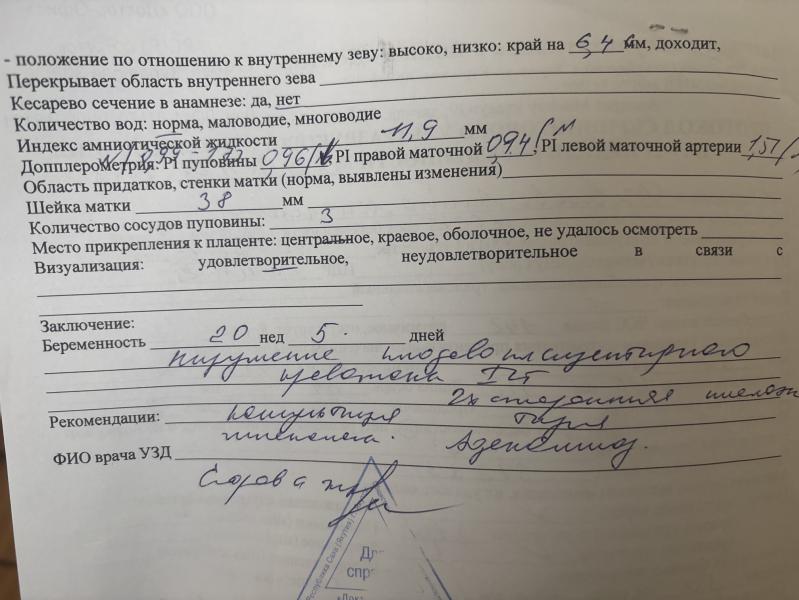 - положение по отношению к внутреннему зеву: высоко, низко: край на 6,4 мм, доходит,
Перекрывает область внутреннего зева
Кесарево сечение в анамнезе: да, нет
Количество вод: норма, маловодие, многоводие
Индекс амниотической жидкости 11,9 мм
Допплерометрия: PI пуповины 0,96 PI правой маточной 0,94 (N, PI левой маточной артерии 1,51
Область придатков, стенки матки (норма, выявлены изменения)
Шейка матки 38 мм
Количество сосудов пуповины: 3
Место прикрепления к плаценте: центральное, краевое, оболочное, не удалось осмотреть
Визуализация: удовлетворительное, неудовлетворительное в связи с
Заключение:
Беременность 20 нед 5 дней
Нарушение плодово плацентарного
кровотока
2х сторонняя
Рекомендации: консультация
гинеколога. Аденомиоз.
ФИО врача УЗД
Республика Саха (Якутия)